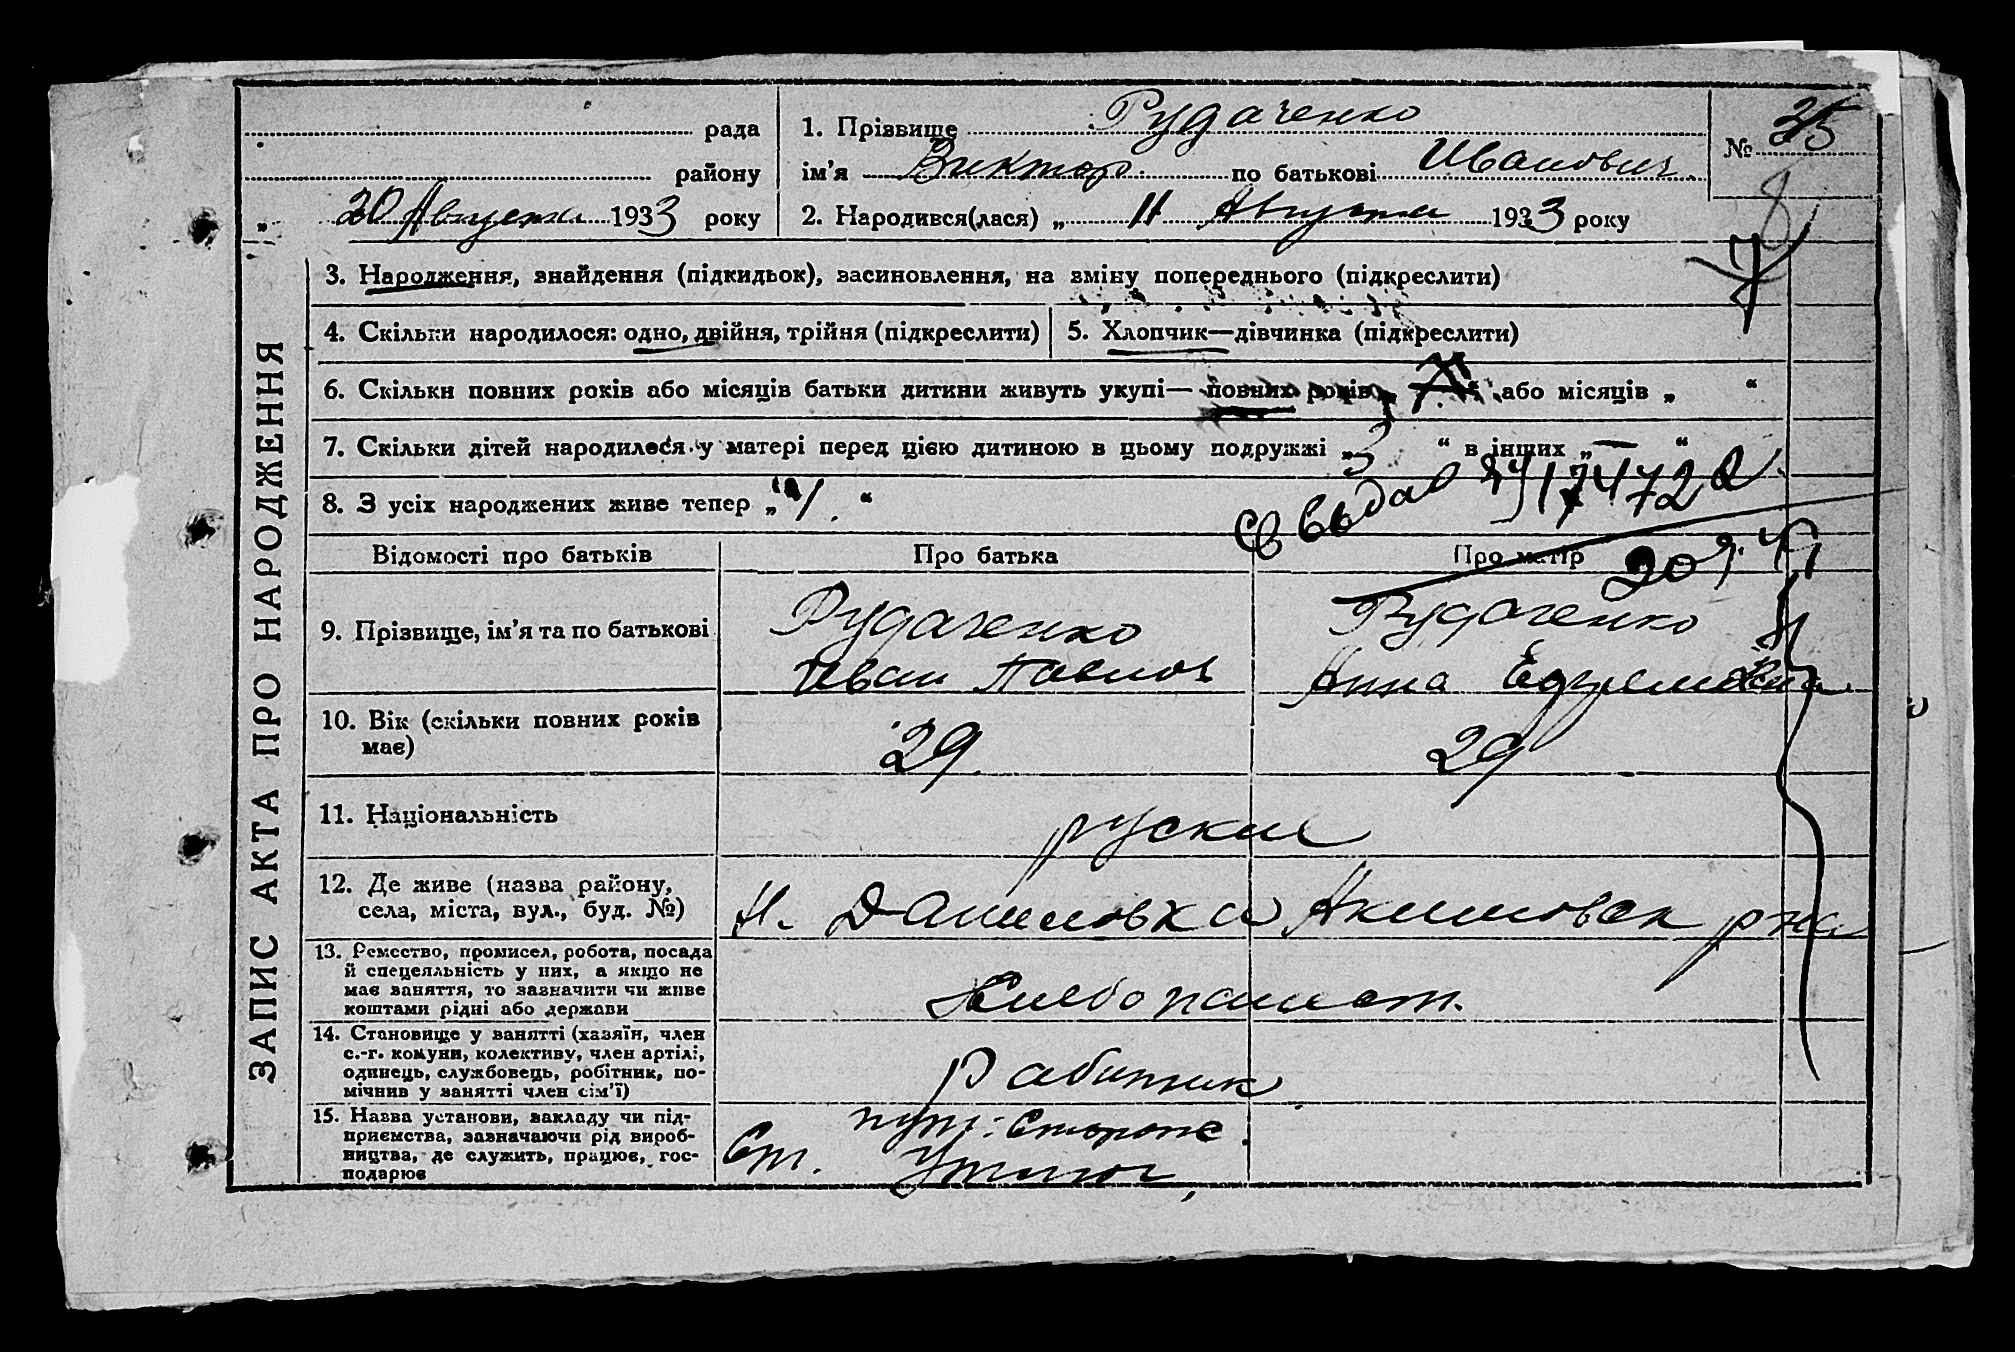 ЗАПИС АКТА ПРО НАРОДЖЕННЯ
рада
району
„ 20 Августа 1933 року
1. Прізвище Рудаченко
ім’я Виктор по батькові Иванович
2. Народився(лася) „ 11 Августа 1933 року
№ 25
8
7
3. Народження, знайдення (підкидьок), васиновлення, на зміну попереднього (підкреслити)
4. Скільки народилося: одно, двійня, трійня (підкреслити)
5. Хлопчик—дівчинка (підкреслити)
6. Скільки повних років або місяців батьки дитини живуть укупі— повних років „ “ або місяців „ “
7. Скільки дітей народилося у матері перед цією дитиною в цьому подружжі „ 3 “ в інших „ — “
8. З усіх народжених живе тепер „ 1 “
Св выдав
Відомості про батьків
Про батька
Про матір
9. Прізвище, ім’я та по батькові
Рудаченко
Иван Павлов
Рудаченко
Анна Ефремовна
10. Вік (скільки повних років
має)
29
29
11. Національність
руские
12. Де живе (назва району,
села, міста, вул., буд. №)
Н. Даниловка Акимовск р на
13. Ремество, промисел, робота, посада
й спецеяльність у них, а якщо не
має заняття, то зазначити чи живе
коштами рідні або держави
Хлебопашест.
14. Становище у занятті (хазяїн, член
с.-г. комуни, колективу, член артілі,
одинець, службовець, робітник, по-
мічнив у занятті член сім’ї)
Рабитник
15. Назва установи, закладу чи під-
приємства, зазначаючи рід вироб-
ництва, де служить, працює, гос-
подарює
пут. Сторож.
Ст.